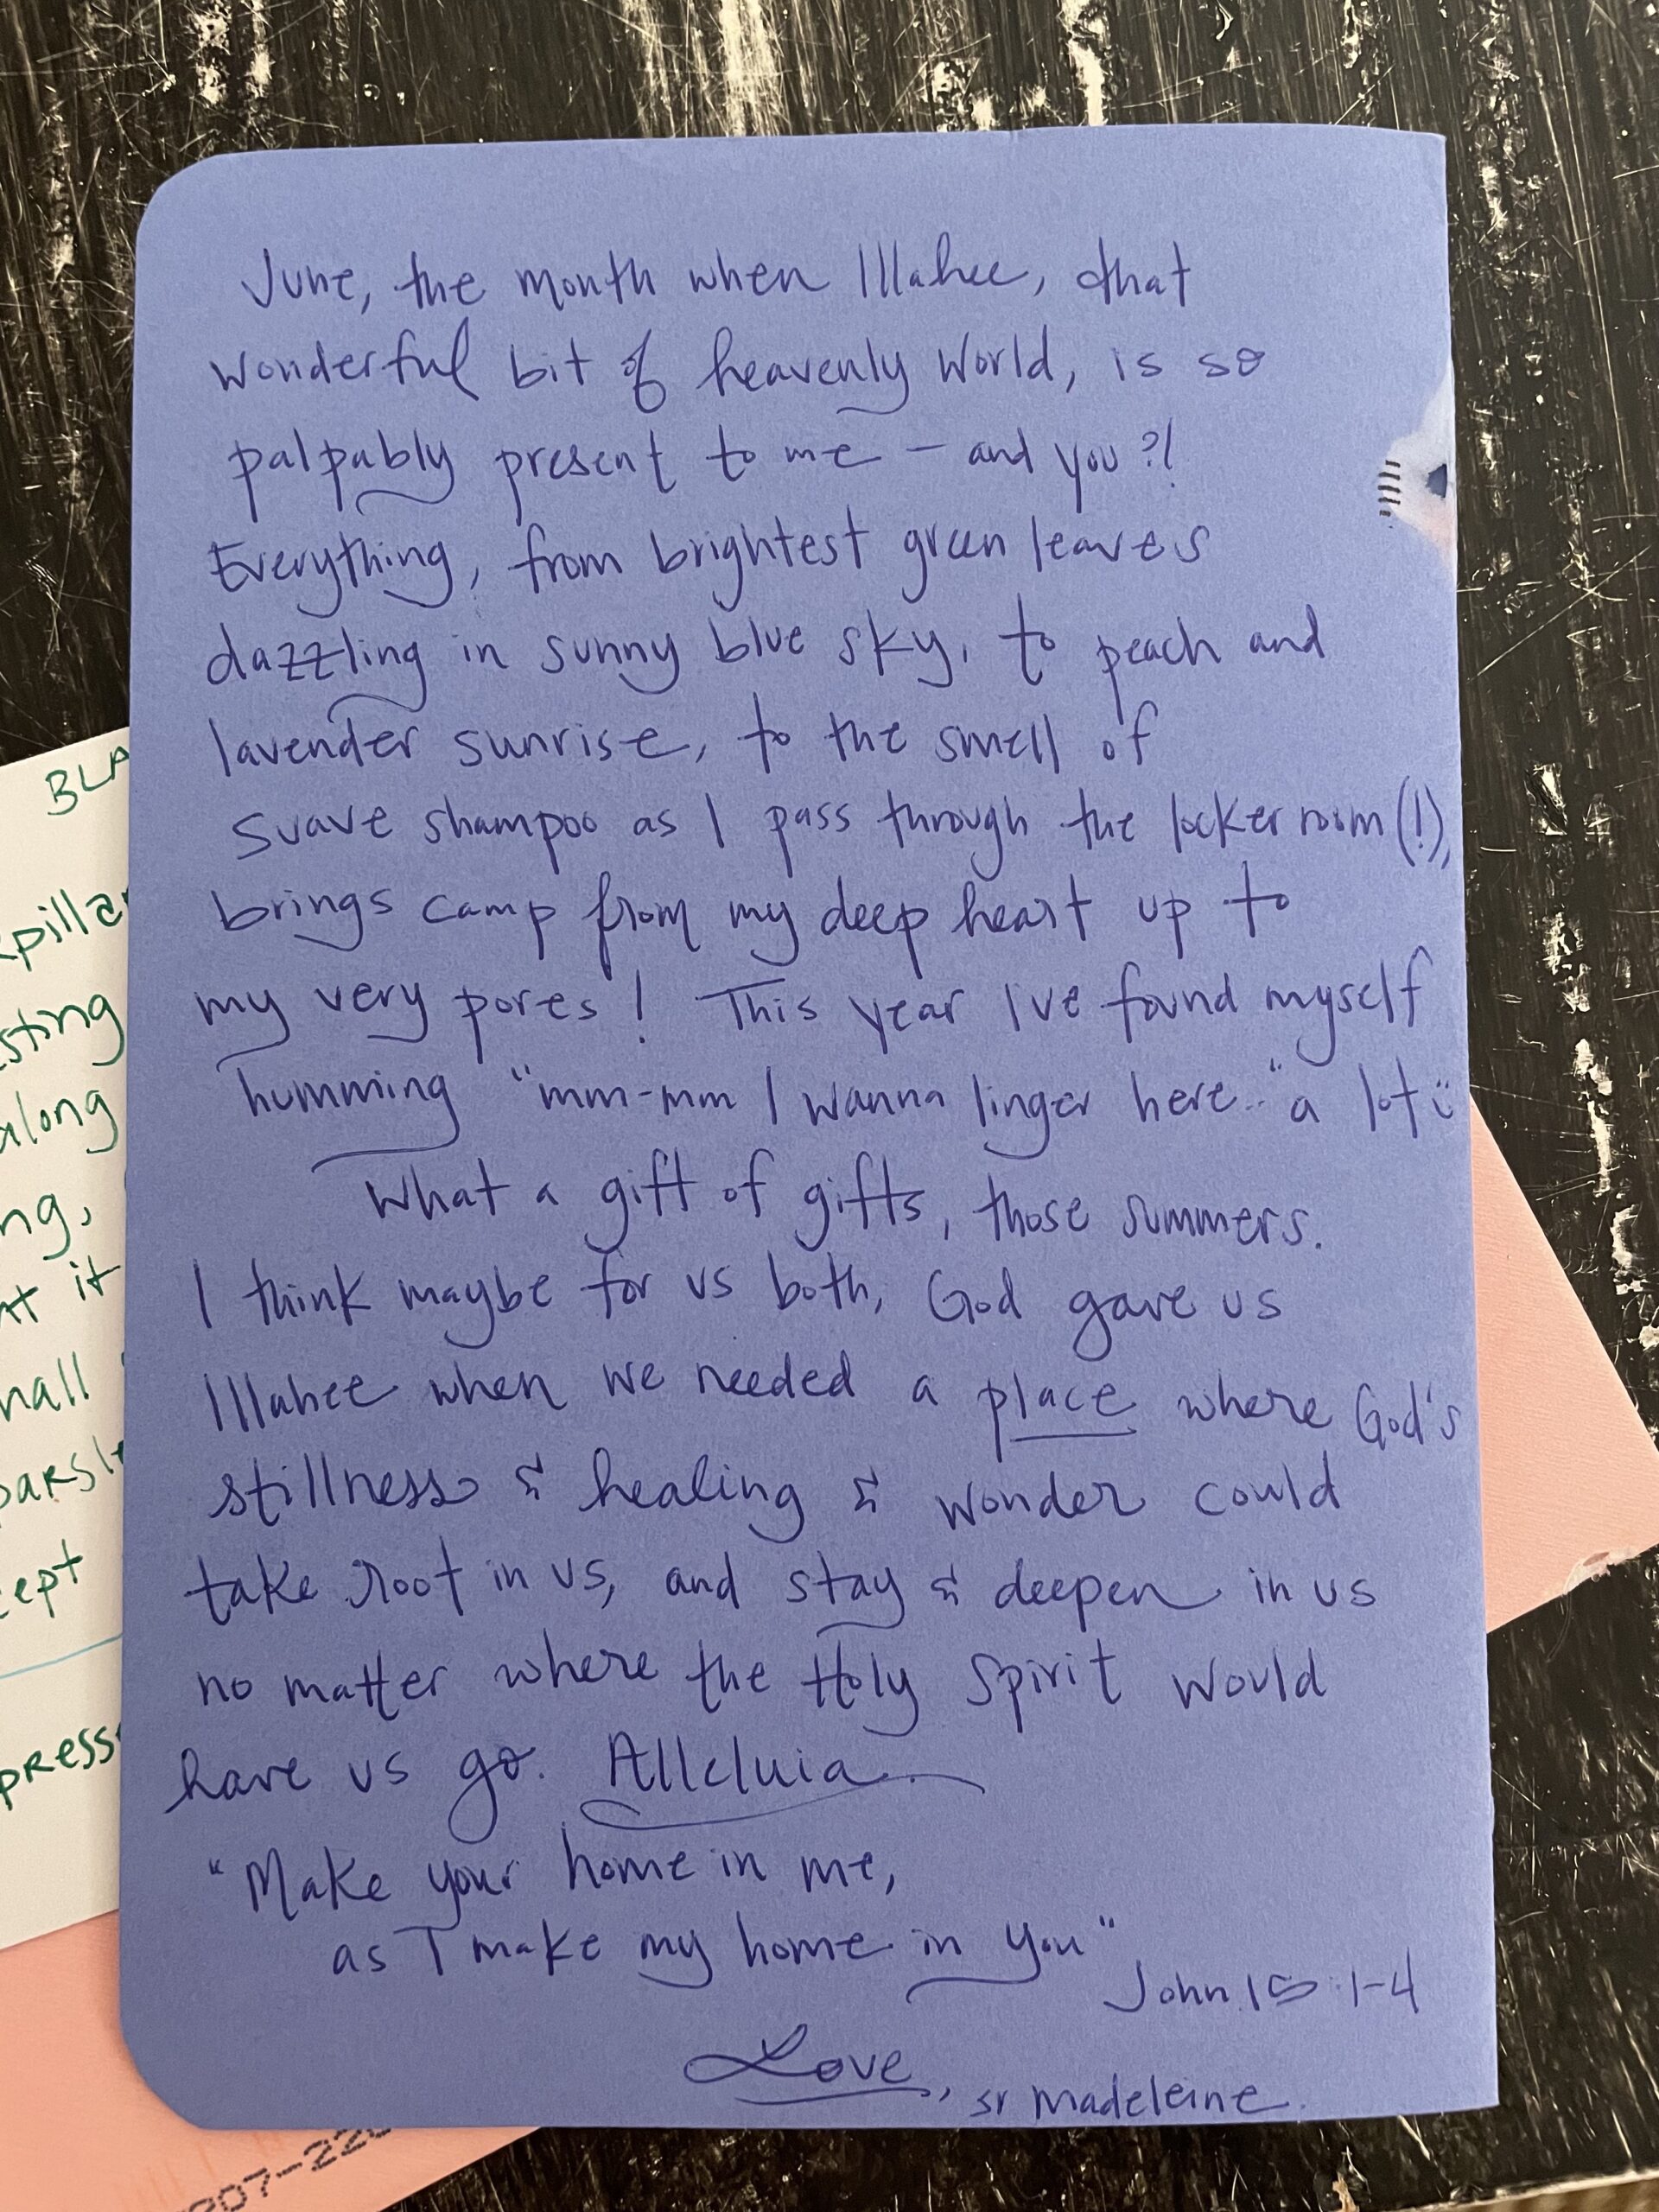 June, the month when Illahee, that
wonderful bit of heavenly world, is so
palpably present to me – and you?!
Everything, from brightest green leaves
dazzling in sunny blue sky, to peach and
lavender sunrise, to the smell of
suave shampoo as I pass through the locker room (!),
brings camp from my deep heart up to
my very pores! This year I've found myself
humming "mm-mm I wanna linger here.." a lot :)
What a gift of gifts, those summers.
I think maybe for us both, God gave us
Illahee when we needed a place where God's
stillness & healing & wonder could
take root in us, and stay & deepen in us
no matter where the Holy Spirit would
have us go. Alleluia.
"Make your home in me,
as I make my home in you"
John 15:1-4
Love, sr madeleine.
BLA
pilla
sting
along
ng,
it
hall
parsl
cept
press
207-22